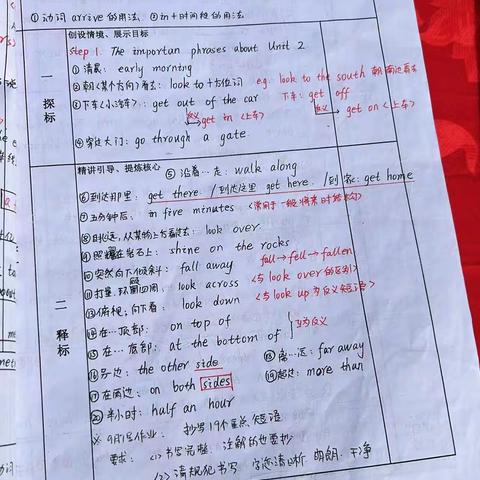 ①动词 arrive 的用法、②in+时间段的用法
创设情境、展示目标
step 1. The importan phrases about Unit 2
①清晨: early morning
②朝<某个方向>看去: look to+方位词 e.g. look to the south 朝南边看去
③下车<小汽车>: get out of the car 下车: get off
反义 get in <上车> 反义 get on <上车>
④穿过大门: go through a gate.
一
探
标
精讲引导、提炼核心 ⑤沿着…走: walk along
⑥到达那里: get there. /到达这里 get here. /到家: get home
⑦五分钟后: in five minutes <常用于一般将来时结构>
look over
shine on the rocks
fall away fall→fell→fallen
look across <与look over的区别>
俯视,向下看: look down <与look up为反义短语>
⑭在…顶部: on top of
⑮在…底部: at the bottom of 互为反义
⑯另边: the other side ⑱离…远: far away
⑰在两边: on both sides ⑲超过: more than
⑳半小时: half an hour
二
释
标
抄写19个重点短语
要求: <1>书写完整, 注解的也要抄
<2>清规范书写 字迹清晰、明朗、干净